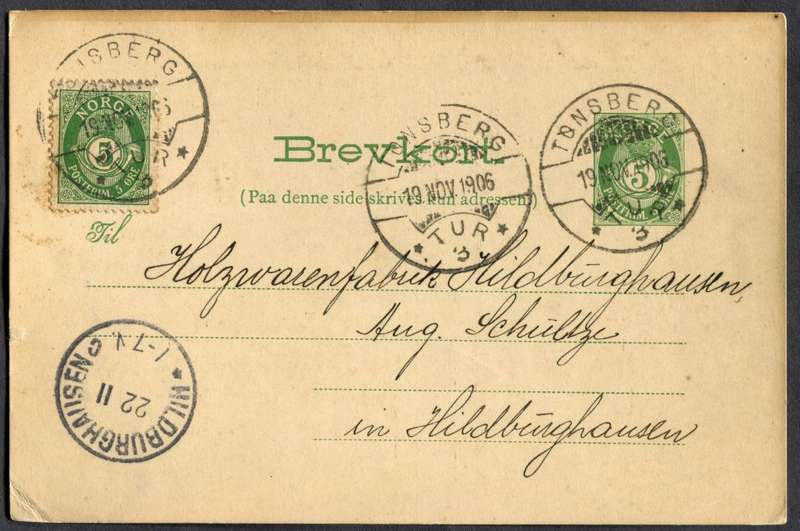 TØNSBERG
19 NOV. 1906
TUR
3
NORGE
5
POSTFRIM. 5 ØRE
Brevkort.
(Paa denne side skrives kun adressen)
TØNSBERG
19 NOV. 1906
TUR
3
TØNSBERG
19 NOV. 1906
3
5
POSTFRIM. 5 ØRE
Til
Holzwarenfabrik Hildburghausen,
Aug. Schultze
in Hildburghausen
HILDBURGHAUSEN
22 11